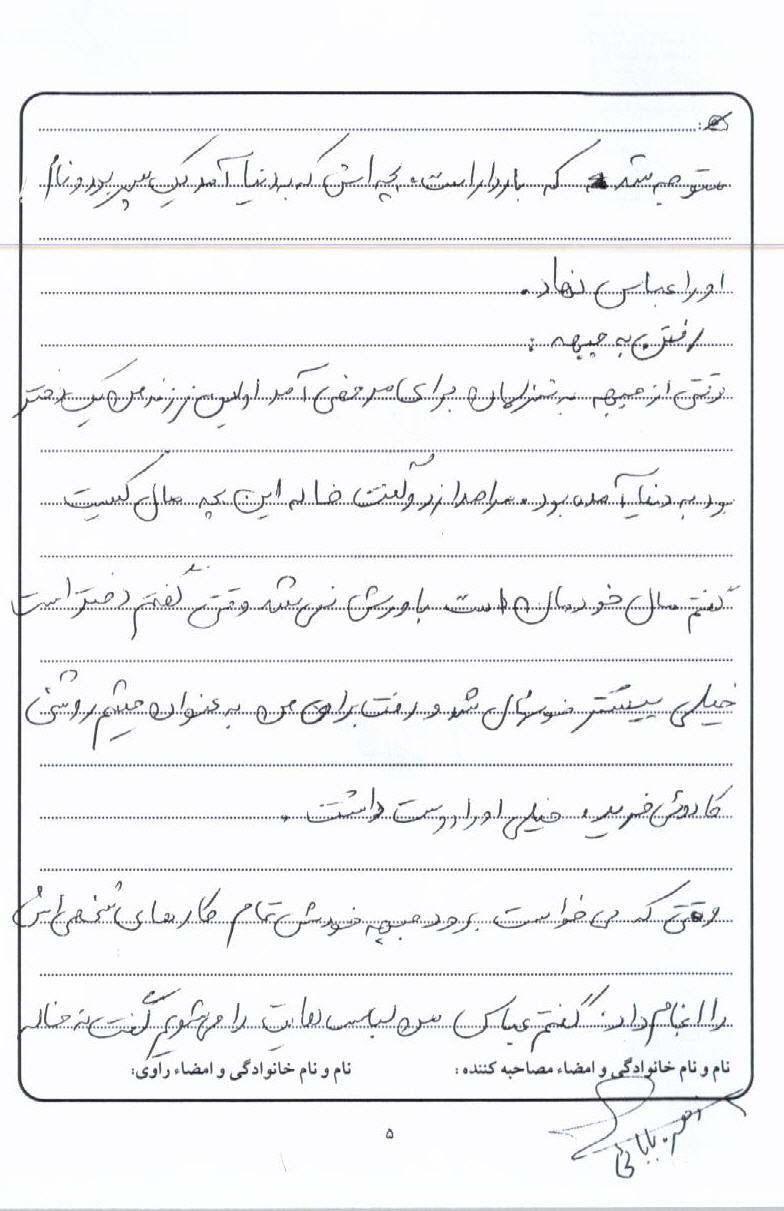 متوجه شد که باردار است. بچه اش که به دنیا آمد یک پسر بود و نام
او را عباس نهاد.
رفتن به جبهه :
وقتی از جبهه به منزلمان برای مرخصی آمد اولین فرزند من یک دختر
بود به دنیا آمده بود. مرا صدا زد و گفت خاله این بچه مال کیست
گفتم مال خودمان است باورش نمی شد وقتی گفتم دختر است
خیلی بیشتر خوشحال شد و رفت برای من به عنوان چشم روشنی
کادوئی خرید. خیلی او را دوست داشت .
وقتی که می خواست برود جبهه خودش تمام کارهای شخصی اش
را انجام داد. گفتم عباس من لباس هایت را می شویم گفت نه خاله
نام و نام خانوادگی و امضاء مصاحبه کننده :
نام و نام خانوادگی و امضاء راوی:
بابائی
۵